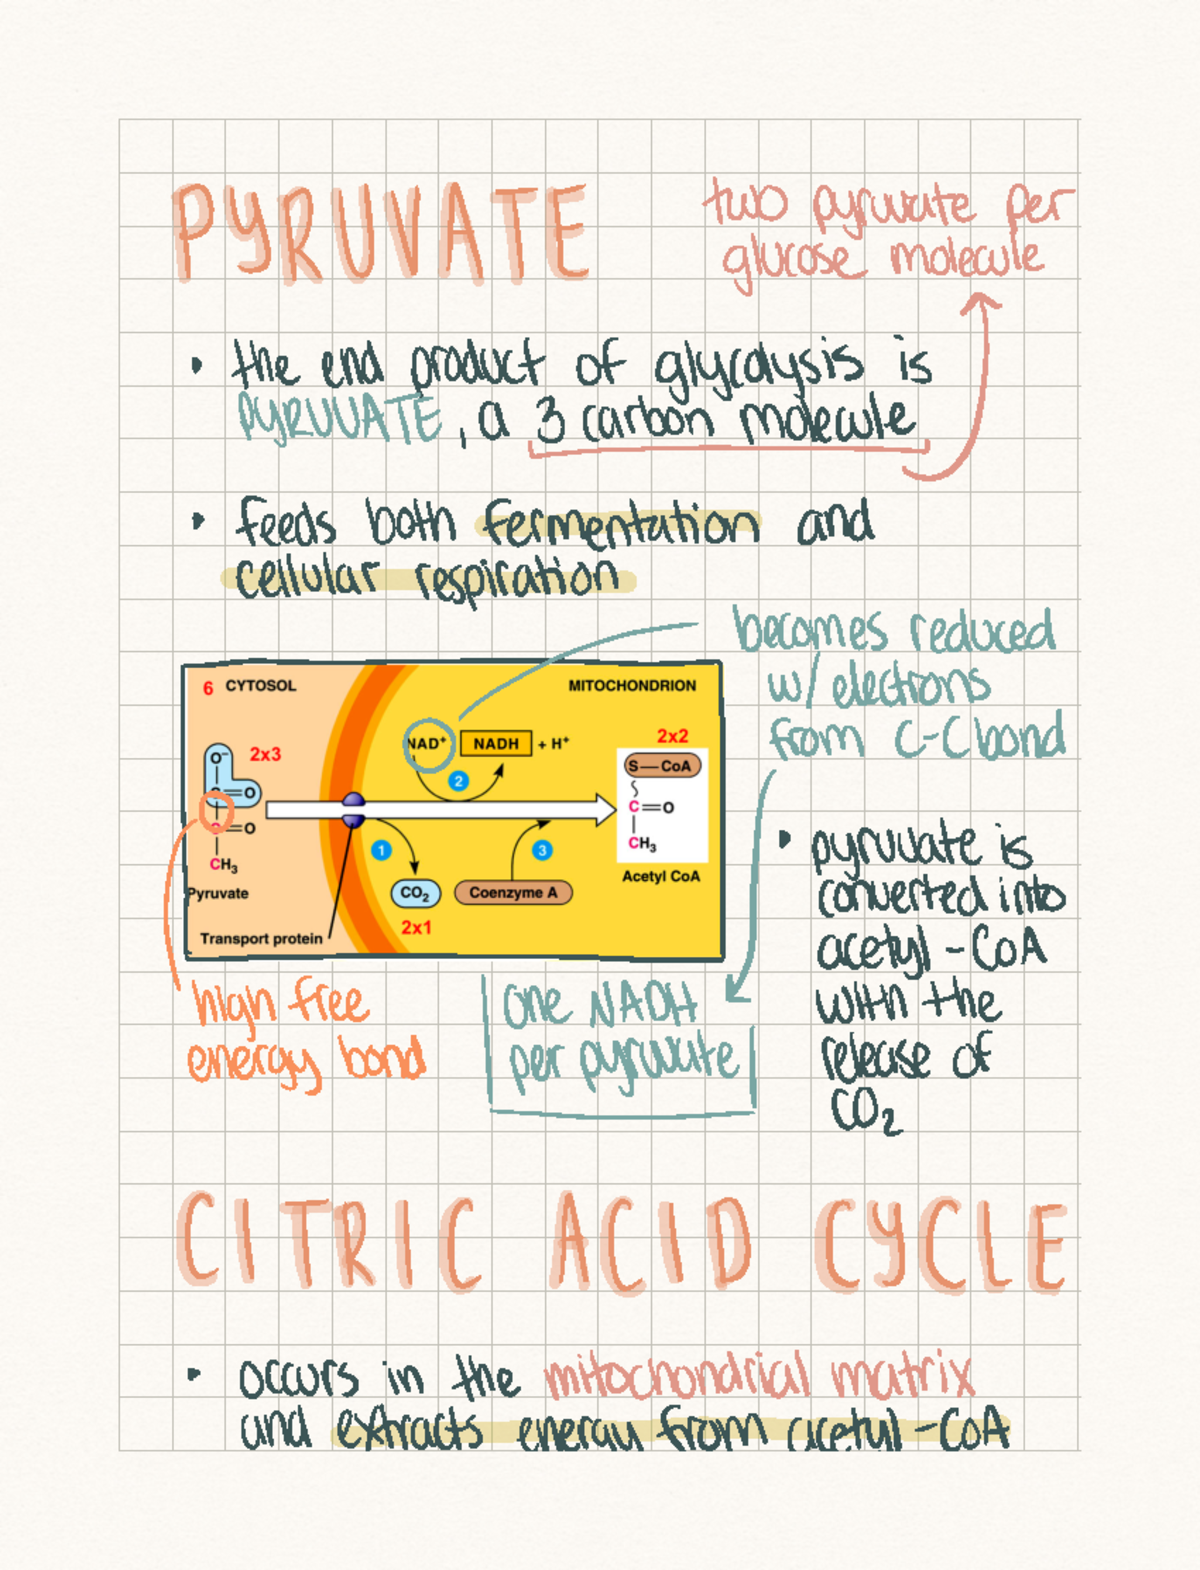 PYRUVATE
two pyruvate per
glucose molecule
• the end product of glycolysis is
PYRUVATE, a 3 carbon molecule
• feeds both fermentation and
cellular respiration
becomes reduced
w/ electrons
from C-C bond
6 CYTOSOL
MITOCHONDRION
NAD⁺
NADH + H⁺
2x3
2x2
O⁻
C=O
C=O
CH₃
Pyruvate
2
1
3
CO₂
2x1
Coenzyme A
S—CoA
C=O
CH₃
Acetyl CoA
Transport protein
high free
energy bond
one NADH
per pyruvate
• pyruvate is
converted into
acetyl-CoA
with the
release of
CO₂
CITRIC ACID CYCLE
• occurs in the mitochondrial matrix
and extracts energy from acetyl-CoA